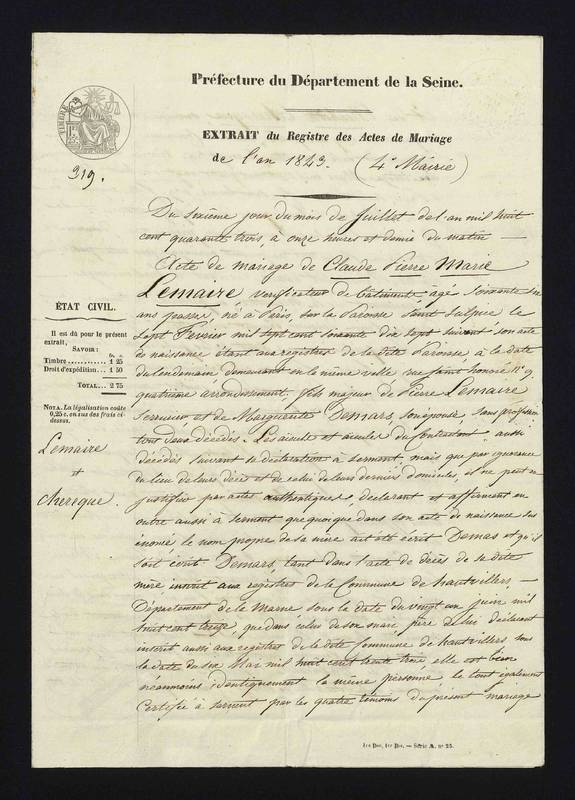 Préfecture du Département de la Seine.
TIMBRE
EXTRAIT du Registre des Actes de Mariage
de l'an 1843. (4e Mairie)
319.
Du sixième jour du mois de Juillet de l'an mil huit
cent quarante trois, à onze heures et demie du matin —
Acte de mariage de Claude Pierre Marie
Lemaire vérificateur de bâtiments, âgé soixante six
ans passés, né à Paris, sur la Paroisse Saint Sulpice le
sept Février mil sept cent soixante dix sept suivant son acte
de naissance étant aux registres de la dite Paroisse, à la date
du lendemain demeurant en la même ville rue Saint honoré
quatrième arrondissement. fils majeur de Pierre Lemaire
serrurier et de Marguerite Demars son épouse, sans profession
tous deux décédés. Les aieuls et aieules du contractant, aussi
décédés suivant sa déclaration à serment, mais que par ignorance
du lieu de leurs décès et de celui de leurs derniers domiciles, il ne peut en
justifier par actes authentiques, déclarant et affirmant en
outre aussi à serment que quoique dans son acte de naissance sus
énoncé le nom propre de sa mère ait été écrit Demas et qu'il
soit écrit Demars, tant dans l'acte de décès de sa dite
mère inscrit aux registres de la Commune de hautvillers —
Département de la Marne, sous la date du vingt un juin mil
huit cent treize, que dans celui de son mari père de lui déclarant
inscrit aussi aux registres de la dite Commune de hautvillers sous
la date du six Mai mil huit cent trente trois, elle est bien
néanmoins identiquement la même personne, le tout également
Certifié à serment par les quatre témoins du présent mariage
ÉTAT CIVIL.
Il est dû pour le présent
extrait,
SAVOIR :
fr. c.
Timbre 1 25
Droit d'expédition 1 50
TOTAL 2 75
NOTA. La légalisation coûte
0,25 c. en sus des frais ci-
dessus.
Lemaire
et
Chereque.
Série A. no 25.